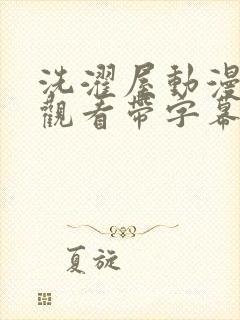 洗濯屋動漫
觀看帶字幕
夏旋